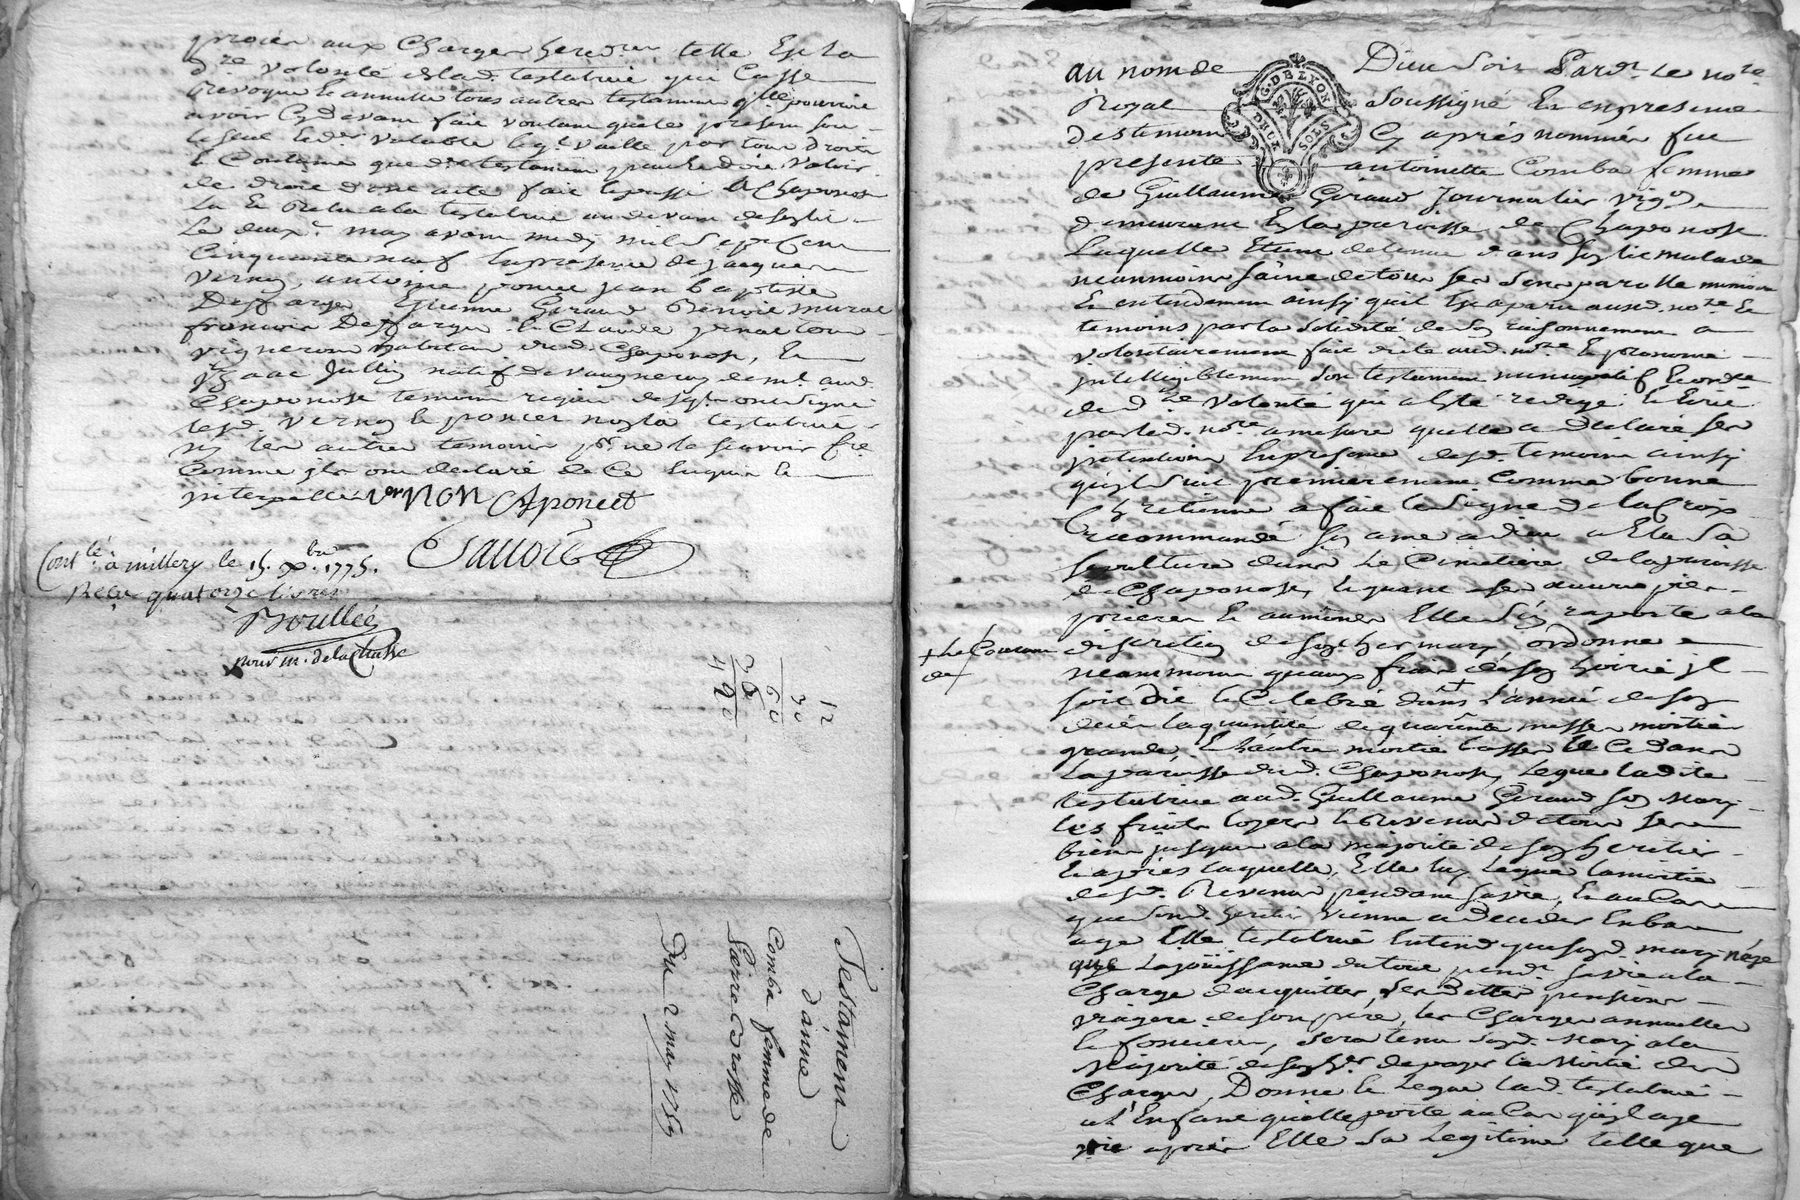 proier aux Charges hered.res telle Est la
d.re volonté de lad. testatrice qui Casse
Revoque et annulle tous autres testamens q.lle pourroit
avoir Cy devant fait voulant que le present soit
le seul et d.er valable le q.l vaille par tous droits
et Coutume que d.er testament peut et doit valoir
de droit dont acte fait et passé à Chaponost
Lu et Relu a la testatrice au devant de son lit
Le deux.e may avant midy mil sept Cent
Cinquante neuf En presence de jacques
vernon, antoine poncet jean baptiste
Deffarges Etienne Geraud Benoit murat
francois Deffarges et Claude tous
vignerons habitans aud. Chaponost, Et
jzaac Jullien natif de Vaugneray dem.t aud.
Chaponost temoins requis desq.ls ont signé
lesd. vernon et poncet non la testatrice
ny les autres temoins p.r ne le scavoir fe
Comme jls ont declaré de Ce Enquis et
jnterpellés vernon A poncet
Savoie
Cont.lé à millery le 15. x.bre 1775.
Reçu quatorze livres
Boullée
pour m. de la Chasse
12
30
30
60
60
28
490
Testament
d'anne
Comba femme de
Pierre Cdrosse
Du 2 may 1759
G. DE LYON
DEUX SOLS
au nom de Dieu soit Pard.t le no.re
Royal soussigné Et en presence
des temoins Cy aprés nommés fut
presente antoinette Comba femme
de Guillaume Geraud Journalier vig.on
demeurant En la paroisse de Chaponost
Laquelle Etant detenue dans son lit malade
neanmoins saine de tous ses sens parolle memoire
Et entendement ainsy qu'il Est aparu aud. no.re Et
temoins par la solidité de son raisonnement a
volontairement fait dicté aud. no.re Et prononcé
jntelligiblement son testament nuncupatif Et ord.ce
de d.re volonté qui a Esté redigé Et Ecrit
par led. no.re a mesure quelle a declaré ses
jntentions En presence desd. temoins ainsy
qu'jl suit premierement Comme bonne
Chretienne a fait le signe de la Croix
recommandé son ame a dieu a Elu sa
sepulture dans Le Cimetiere de la paroisse
de Chaponost, Et quant a ses œuvres pies
prieres Et aumônes Elle s'en raporte a la
discretion de son cher mary, ordonne
neanmoins quaux frais de son hoirie jl
+ le Courant
de
soit dit et Celebré dans + l'année de son
decés la quantité de quarante messes moitié
grandes, Et lautre moitié basses Et Ce dans
La paroisse dud. Chaponost, Legue ladite
testatrice aud. Guillaume Geraud son mary
les fruits loyers Et Revenus de tous ses
biens jusques a la majorité de son heritier
Et aprés laquelle, Elle luy Legue la moitié
desd. Revenus pendant sa vie, Et au Cas
que sond. heritier vienne a decéder En bas
age Elle testatrice Entend que sond. mary n'aye
que La joüissance du tout pend.t sa vie a la
Charge dacquitter ses dettes pensions
viagere de son pere, les Charges annuelles
Et foncieres, sera tenu sond. mary a la
majorité de son h.er de payer la moitié des
Charges, Donne Et Legue lad. testatrice
a L'Enfant quelle porte au Cas qu'jl aye
vie aprés Elle sa Legitime telle que